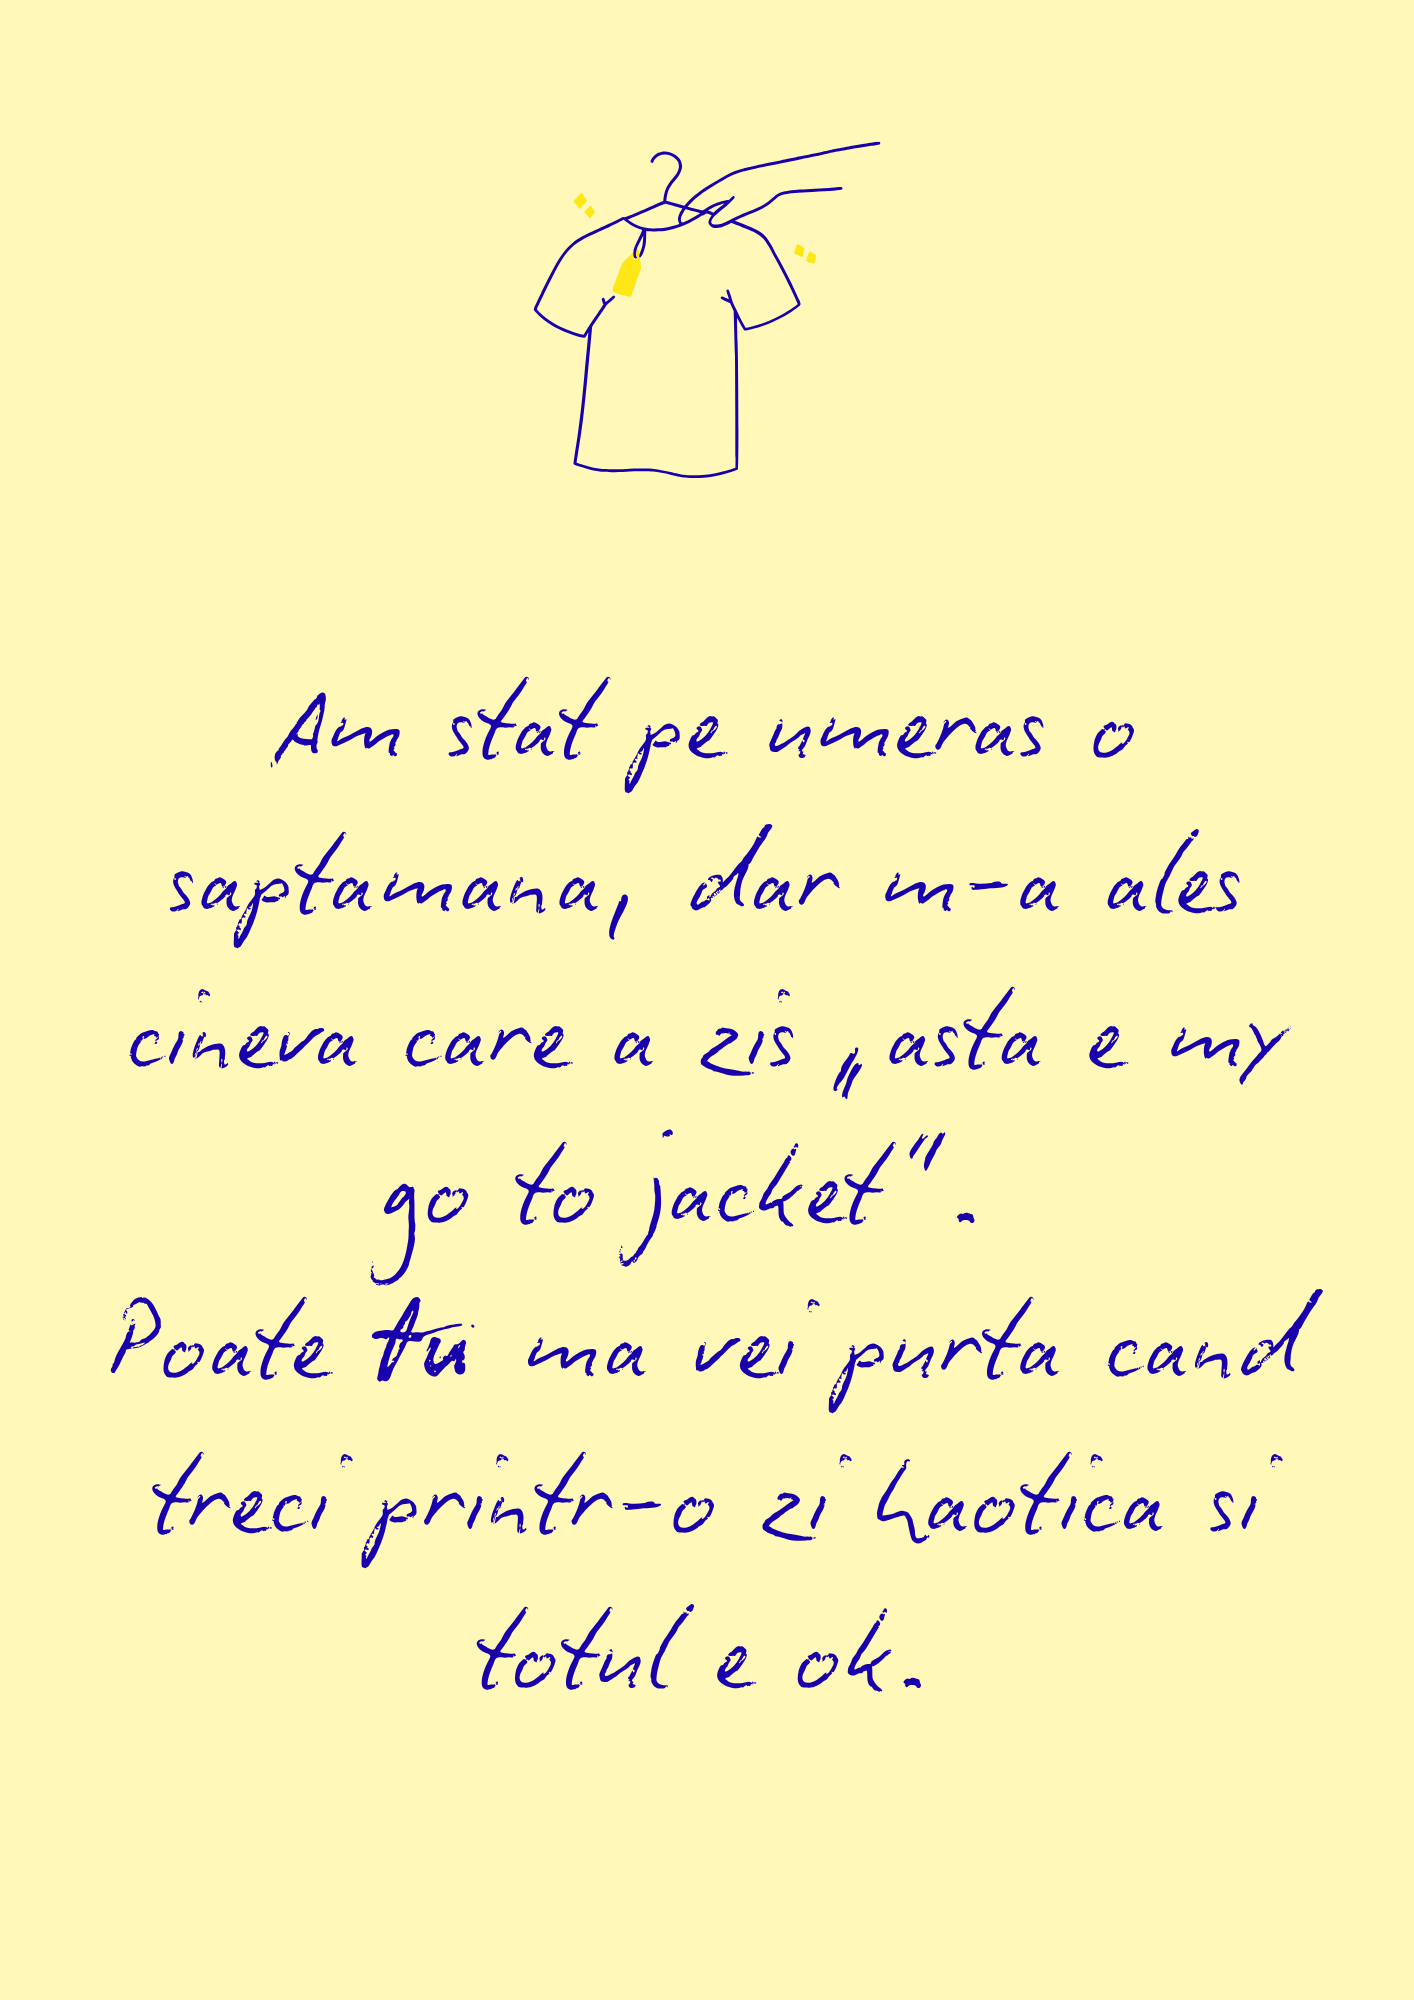 Am stat pe umeras o
saptamana, dar m-a ales
cineva care a zis „asta e my
go to jacket”.
Poate tu ma vei purta cand
treci printr-o zi haotica si
totul e ok.